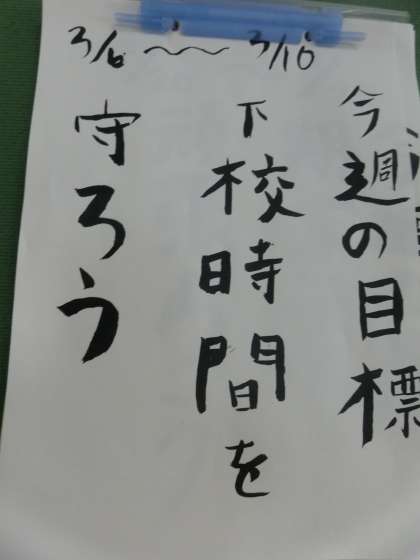 3/6 〜 3/10
今週の目標
下校時間を
守ろう